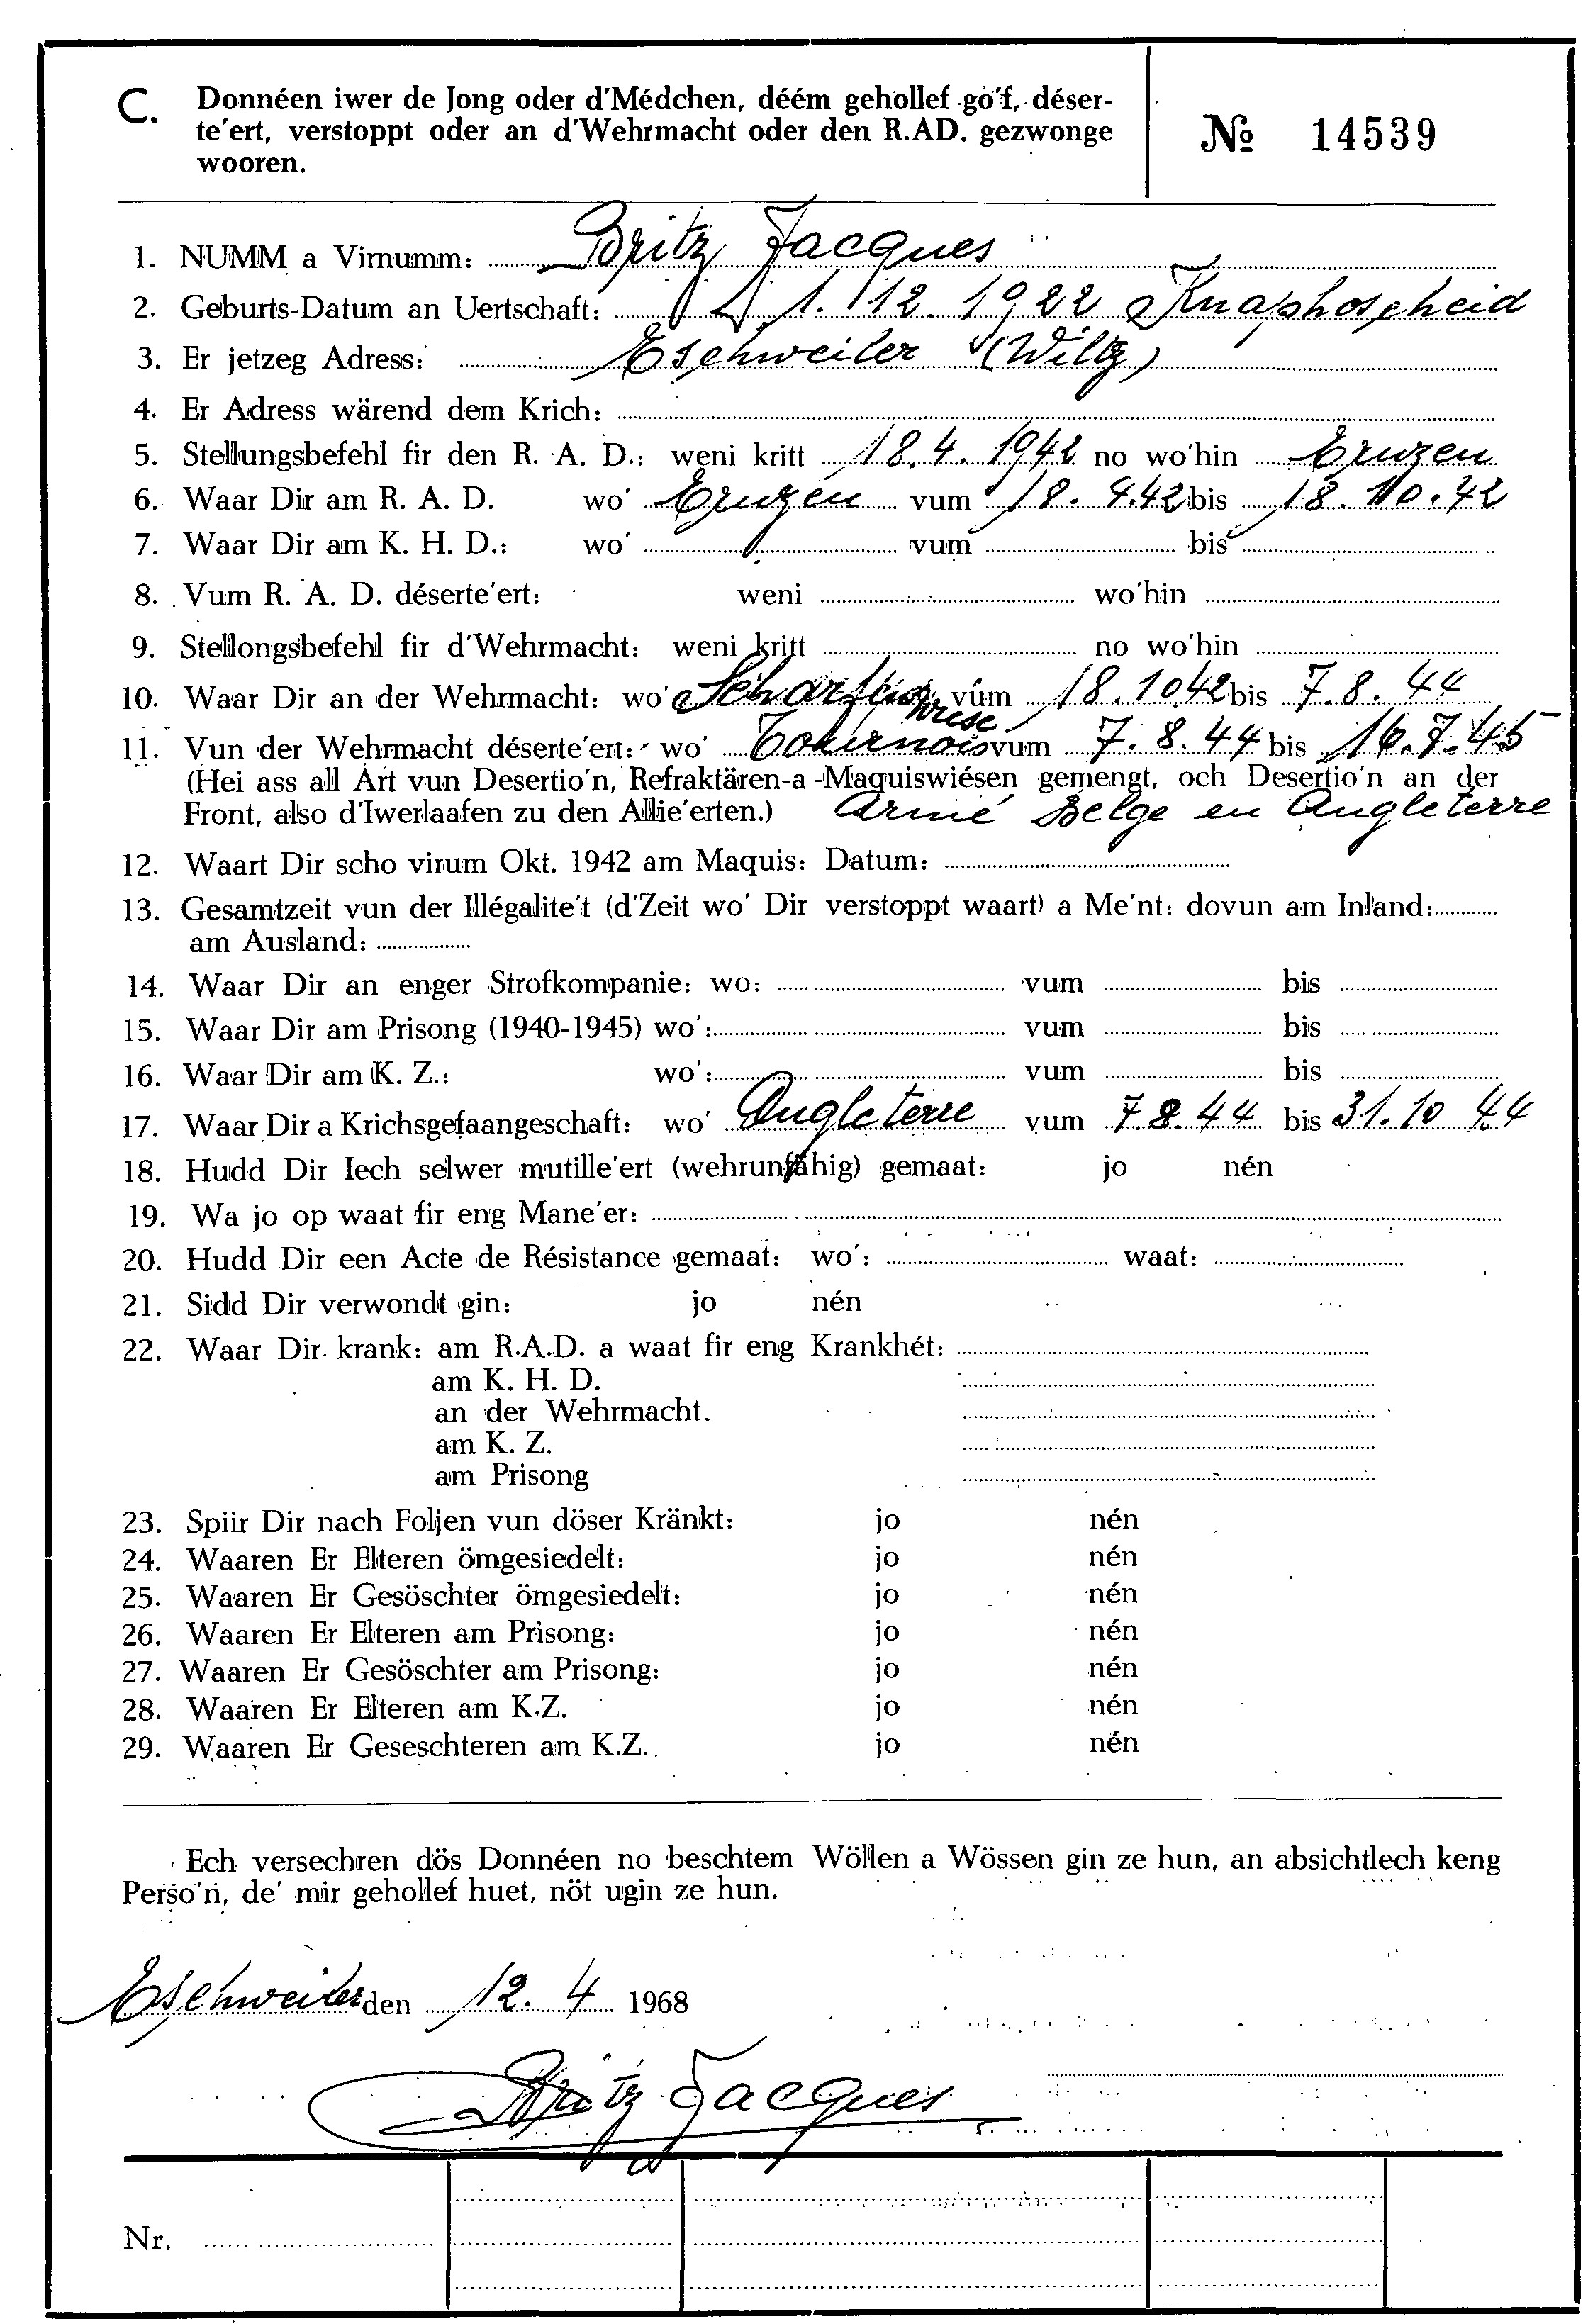 C. Donnéen iwer de Jong oder d'Médchen, déém gehollef go'f, déser-
te'ert, verstoppt oder an d'Wehrmacht oder den R.AD. gezwonge
wooren.
№ 14539
1. NUMM a Virnumm: Britz Jacques
2. Geburts-Datum an Uertschaft: 1. 12. 1922 Knaphoscheid
3. Er jetzeg Adress: Eschweiler (Wiltz)
4. Er Adress wärend dem Krich:
5. Stellungsbefehl fir den R. A. D.: weni kritt 18.4.1942 no wo'hin Eruzen
6. Waar Dir am R. A. D. wo' Eruzen vum 18.4.42 bis 18.10.42
7. Waar Dir am K. H. D.: wo' vum bis
8. Vum R. A. D. déserte'ert: weni wo'hin
9. Stellongsbefehl fir d'Wehrmacht: weni kritt no wo'hin
10. Waar Dir an der Wehrmacht: wo' Scharfenwiese vum 18.1042 bis 7.8.44
11. Vun der Wehrmacht déserte'ert: wo' Tournois vum 7.8.44 bis 16.7.45
(Hei ass all Art vun Desertio'n, Refraktären-a -Maquiswiésen gemengt, och Desertio'n an der
Front, also d'Iwerlaafen zu den Allie'erten.) Armé Belge en Angleterre
12. Waart Dir scho virum Okt. 1942 am Maquis: Datum:
13. Gesamtzeit vun der Illégalite't (d'Zeit wo' Dir verstoppt waart) a Me'nt: dovun am Inland:
am Ausland:
14. Waar Dir an enger Strofkompanie: wo: vum bis
15. Waar Dir am Prisong (1940-1945) wo': vum bis
16. Waar Dir am K. Z.: wo': vum bis
17. Waar Dir a Krichsgefaangeschaft: wo' Angleterre vum 7.8.44 bis 31.10 44
18. Hudd Dir Iech selwer mutille'ert (wehrunfähig) gemaat: jo nén
19. Wa jo op waat fir eng Mane'er:
20. Hudd Dir een Acte de Résistance gemaat: wo': waat:
21. Sidd Dir verwondt gin: jo nén
22. Waar Dir krank: am R.A.D. a waat fir eng Krankhét:
am K. H. D.
an der Wehrmacht.
am K. Z.
am Prisong
23. Spiir Dir nach Foljen vun döser Kränkt: jo nén
24. Waaren Er Elteren ömgesiedelt: jo nén
25. Waaren Er Gesöschter ömgesiedelt: jo nén
26. Waaren Er Elteren am Prisong: jo nén
27. Waaren Er Gesöschter am Prisong: jo nén
28. Waaren Er Elteren am K.Z. jo nén
29. Waaren Er Geseschteren am K.Z. jo nén
Ech versechren dös Donnéen no beschtem Wöllen a Wössen gin ze hun, an absichtlech keng
Perso'n, de' mir gehollef huet, nöt ugin ze hun.
Eschweiler den 12. 4 1968
Britz Jacques
Nr.